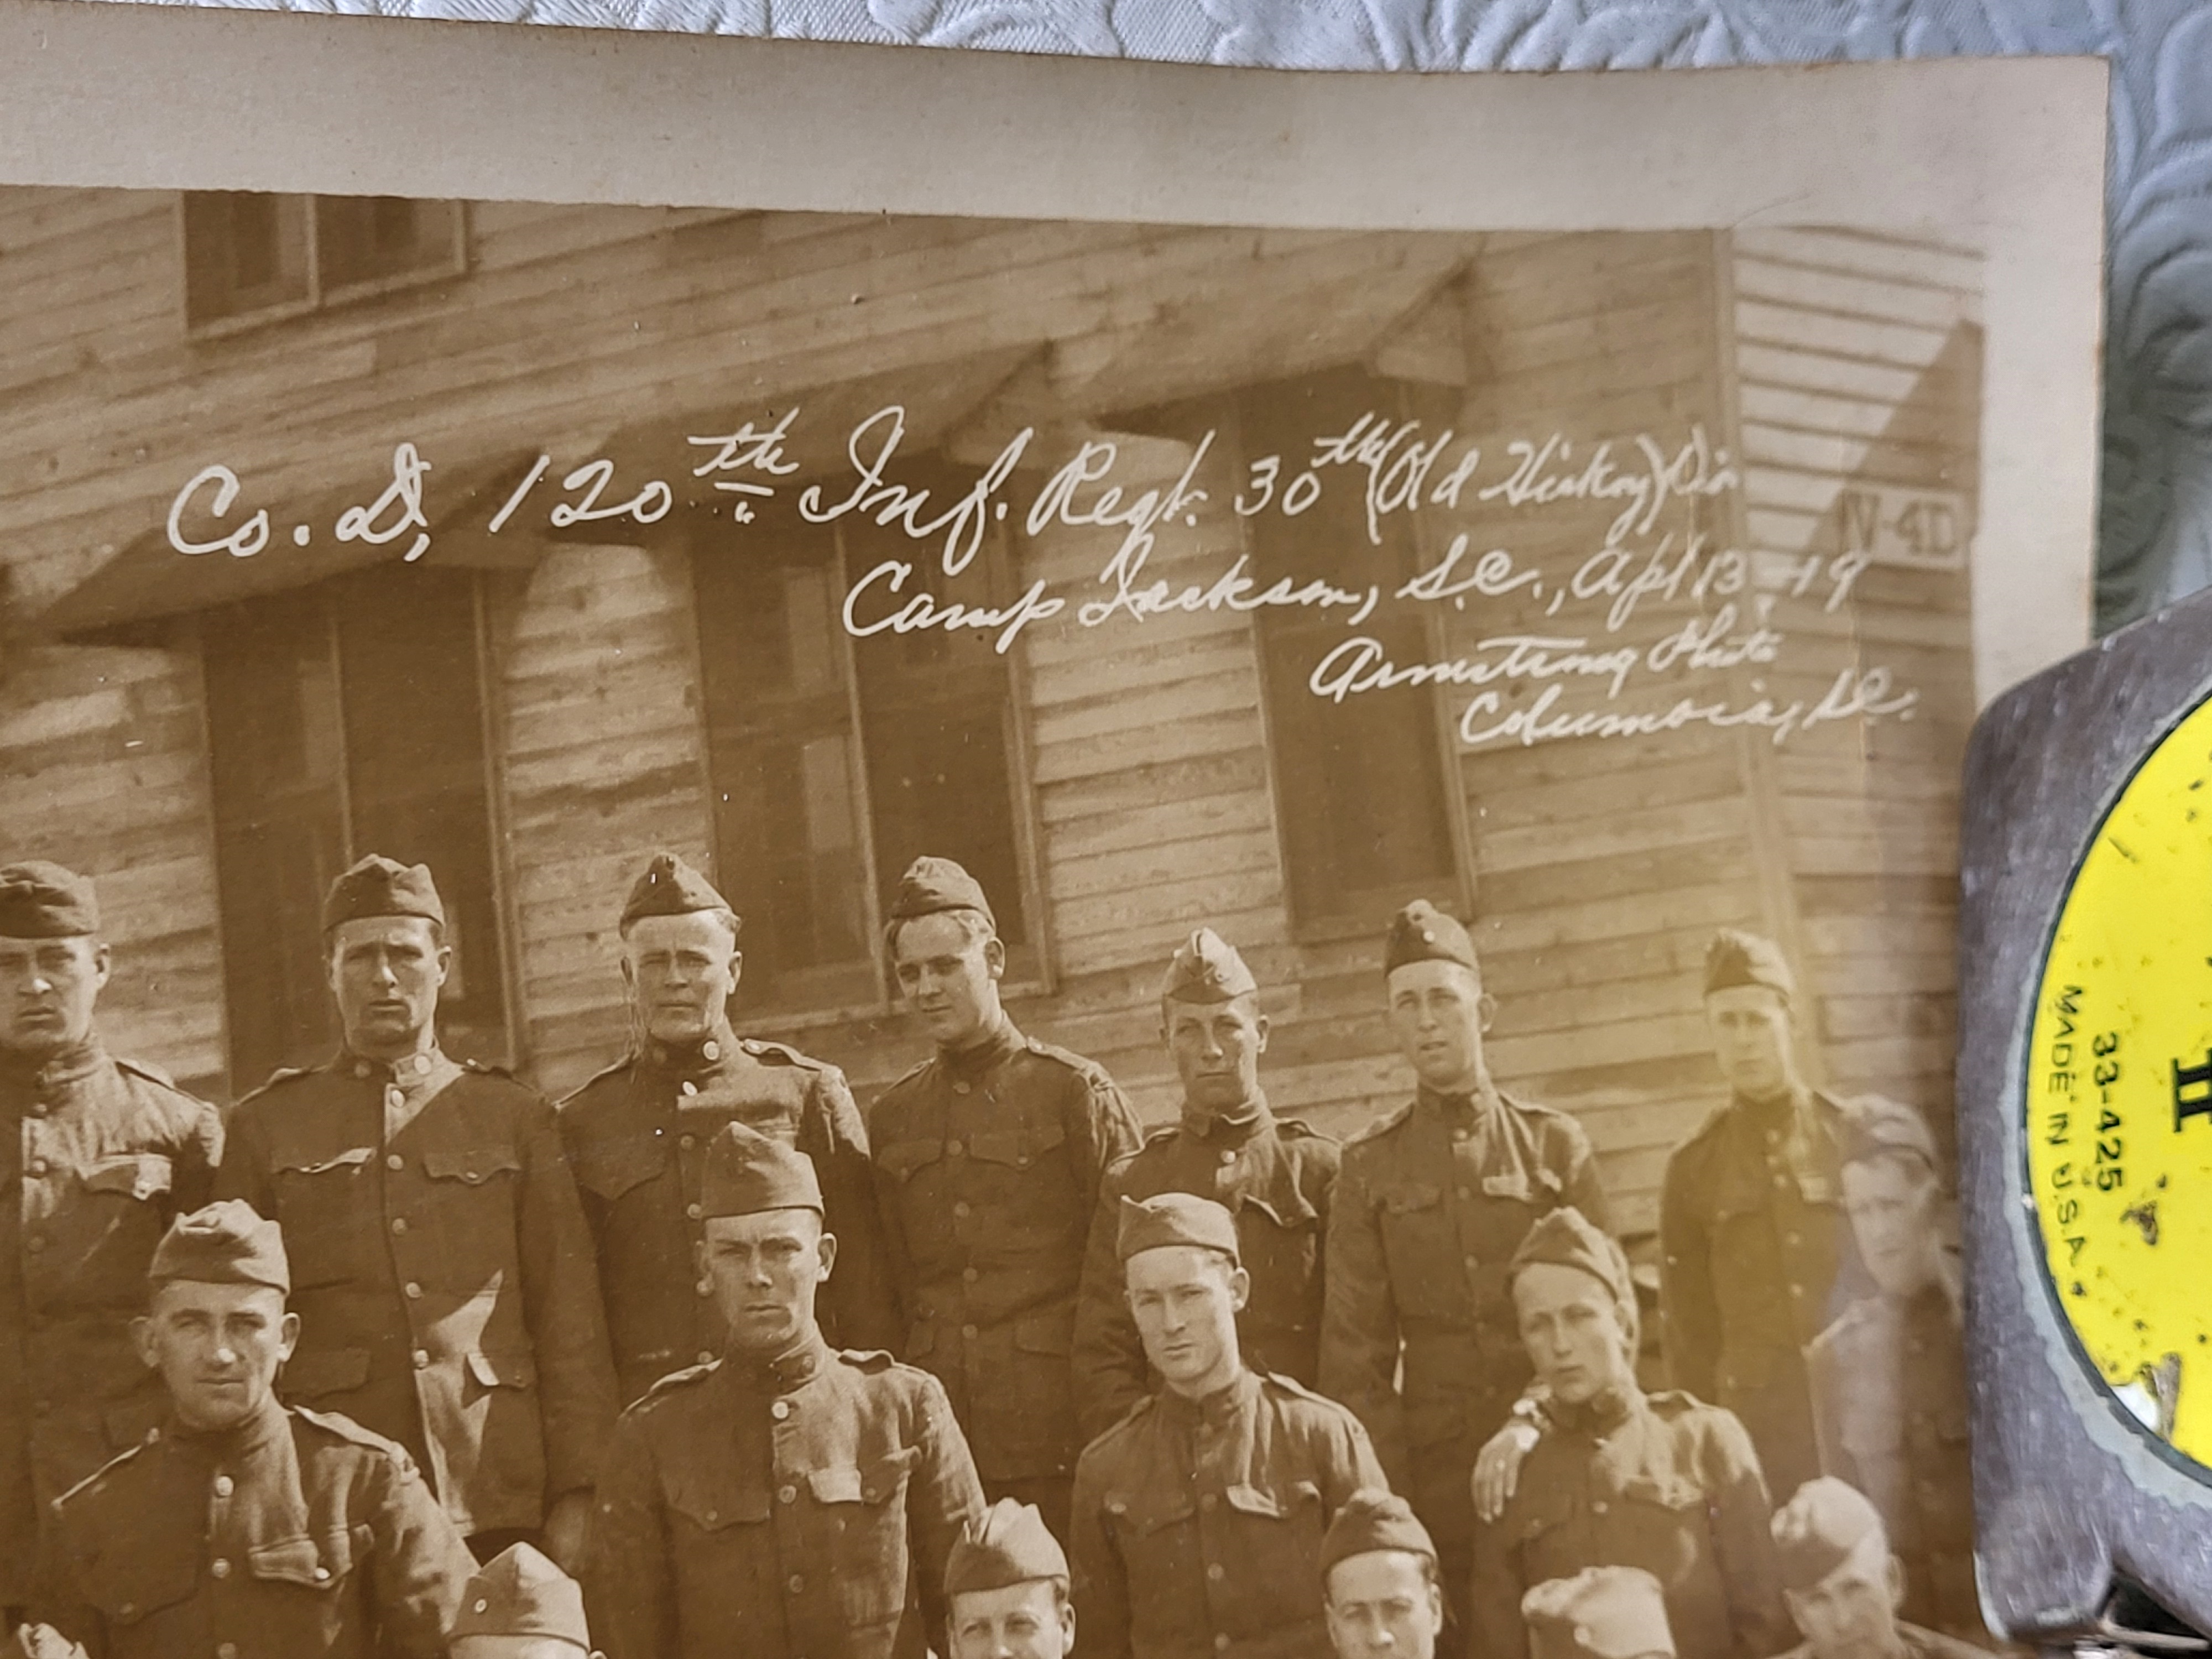 Co. D, 120th Inf. Regt. 30th (Old Hickory) Div
Camp Jackson, S.C., Apl 13-19
Armstrong Photo
Columbia, S.C.
IV-4D
33-425
MADE IN U.S.A.